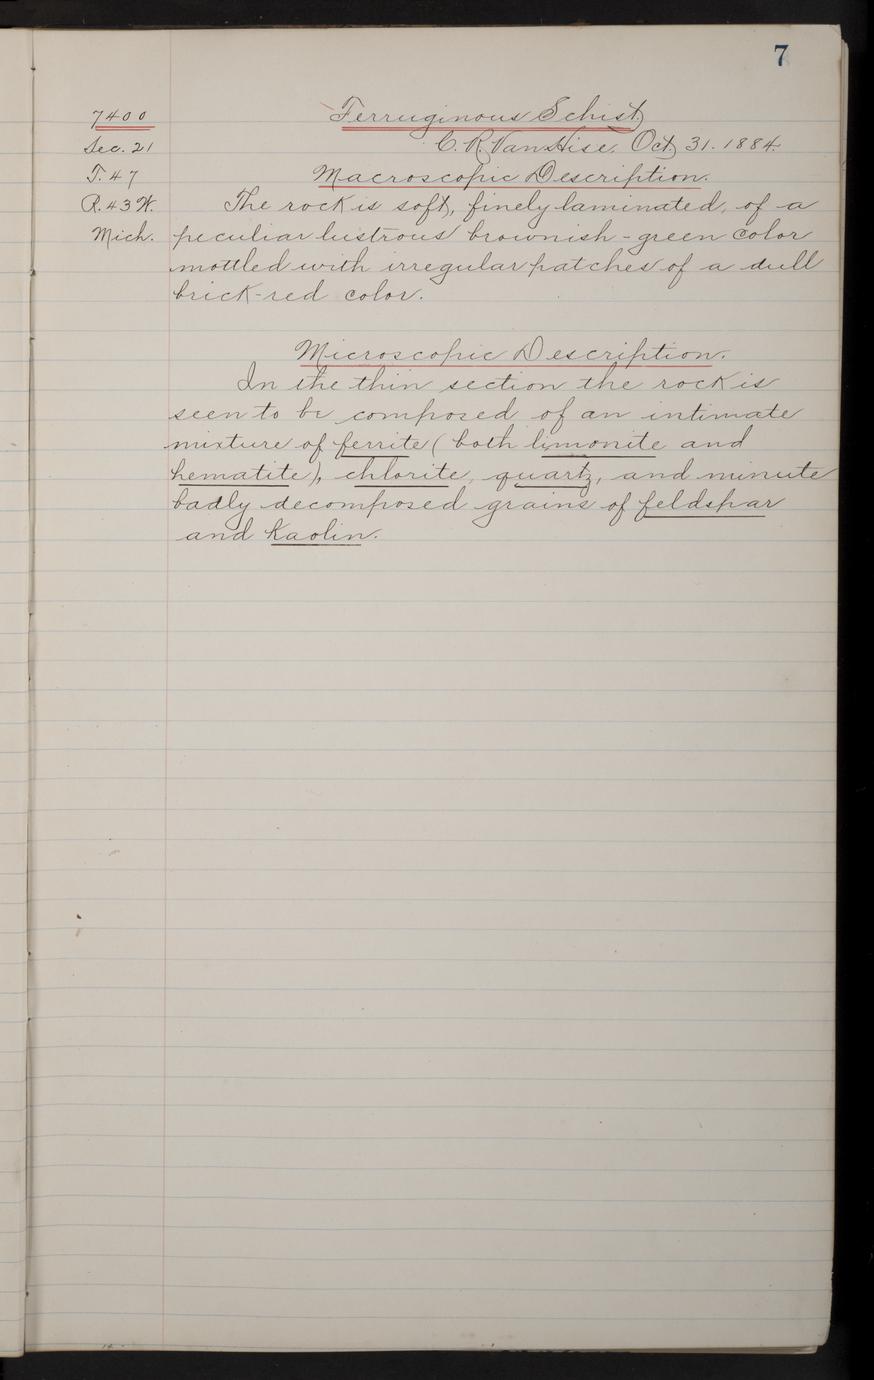 7
7400
Ferruginous Schist.
Sec. 21
C. R. Van Hise. Oct. 31. 1884.
T. 47
Macroscopic Description.
R. 43 W.
The rock is soft, finely laminated, of a
Mich.
peculiar lustrous brownish-green color
mottled with irregular patches of a dull
brick-red color.
Microscopic Description.
In the thin section the rock is
seen to be composed of an intimate
mixture of ferrite (both limonite and
hematite), chlorite, quartz, and minute
badly decomposed grains of feldspar
and kaolin.